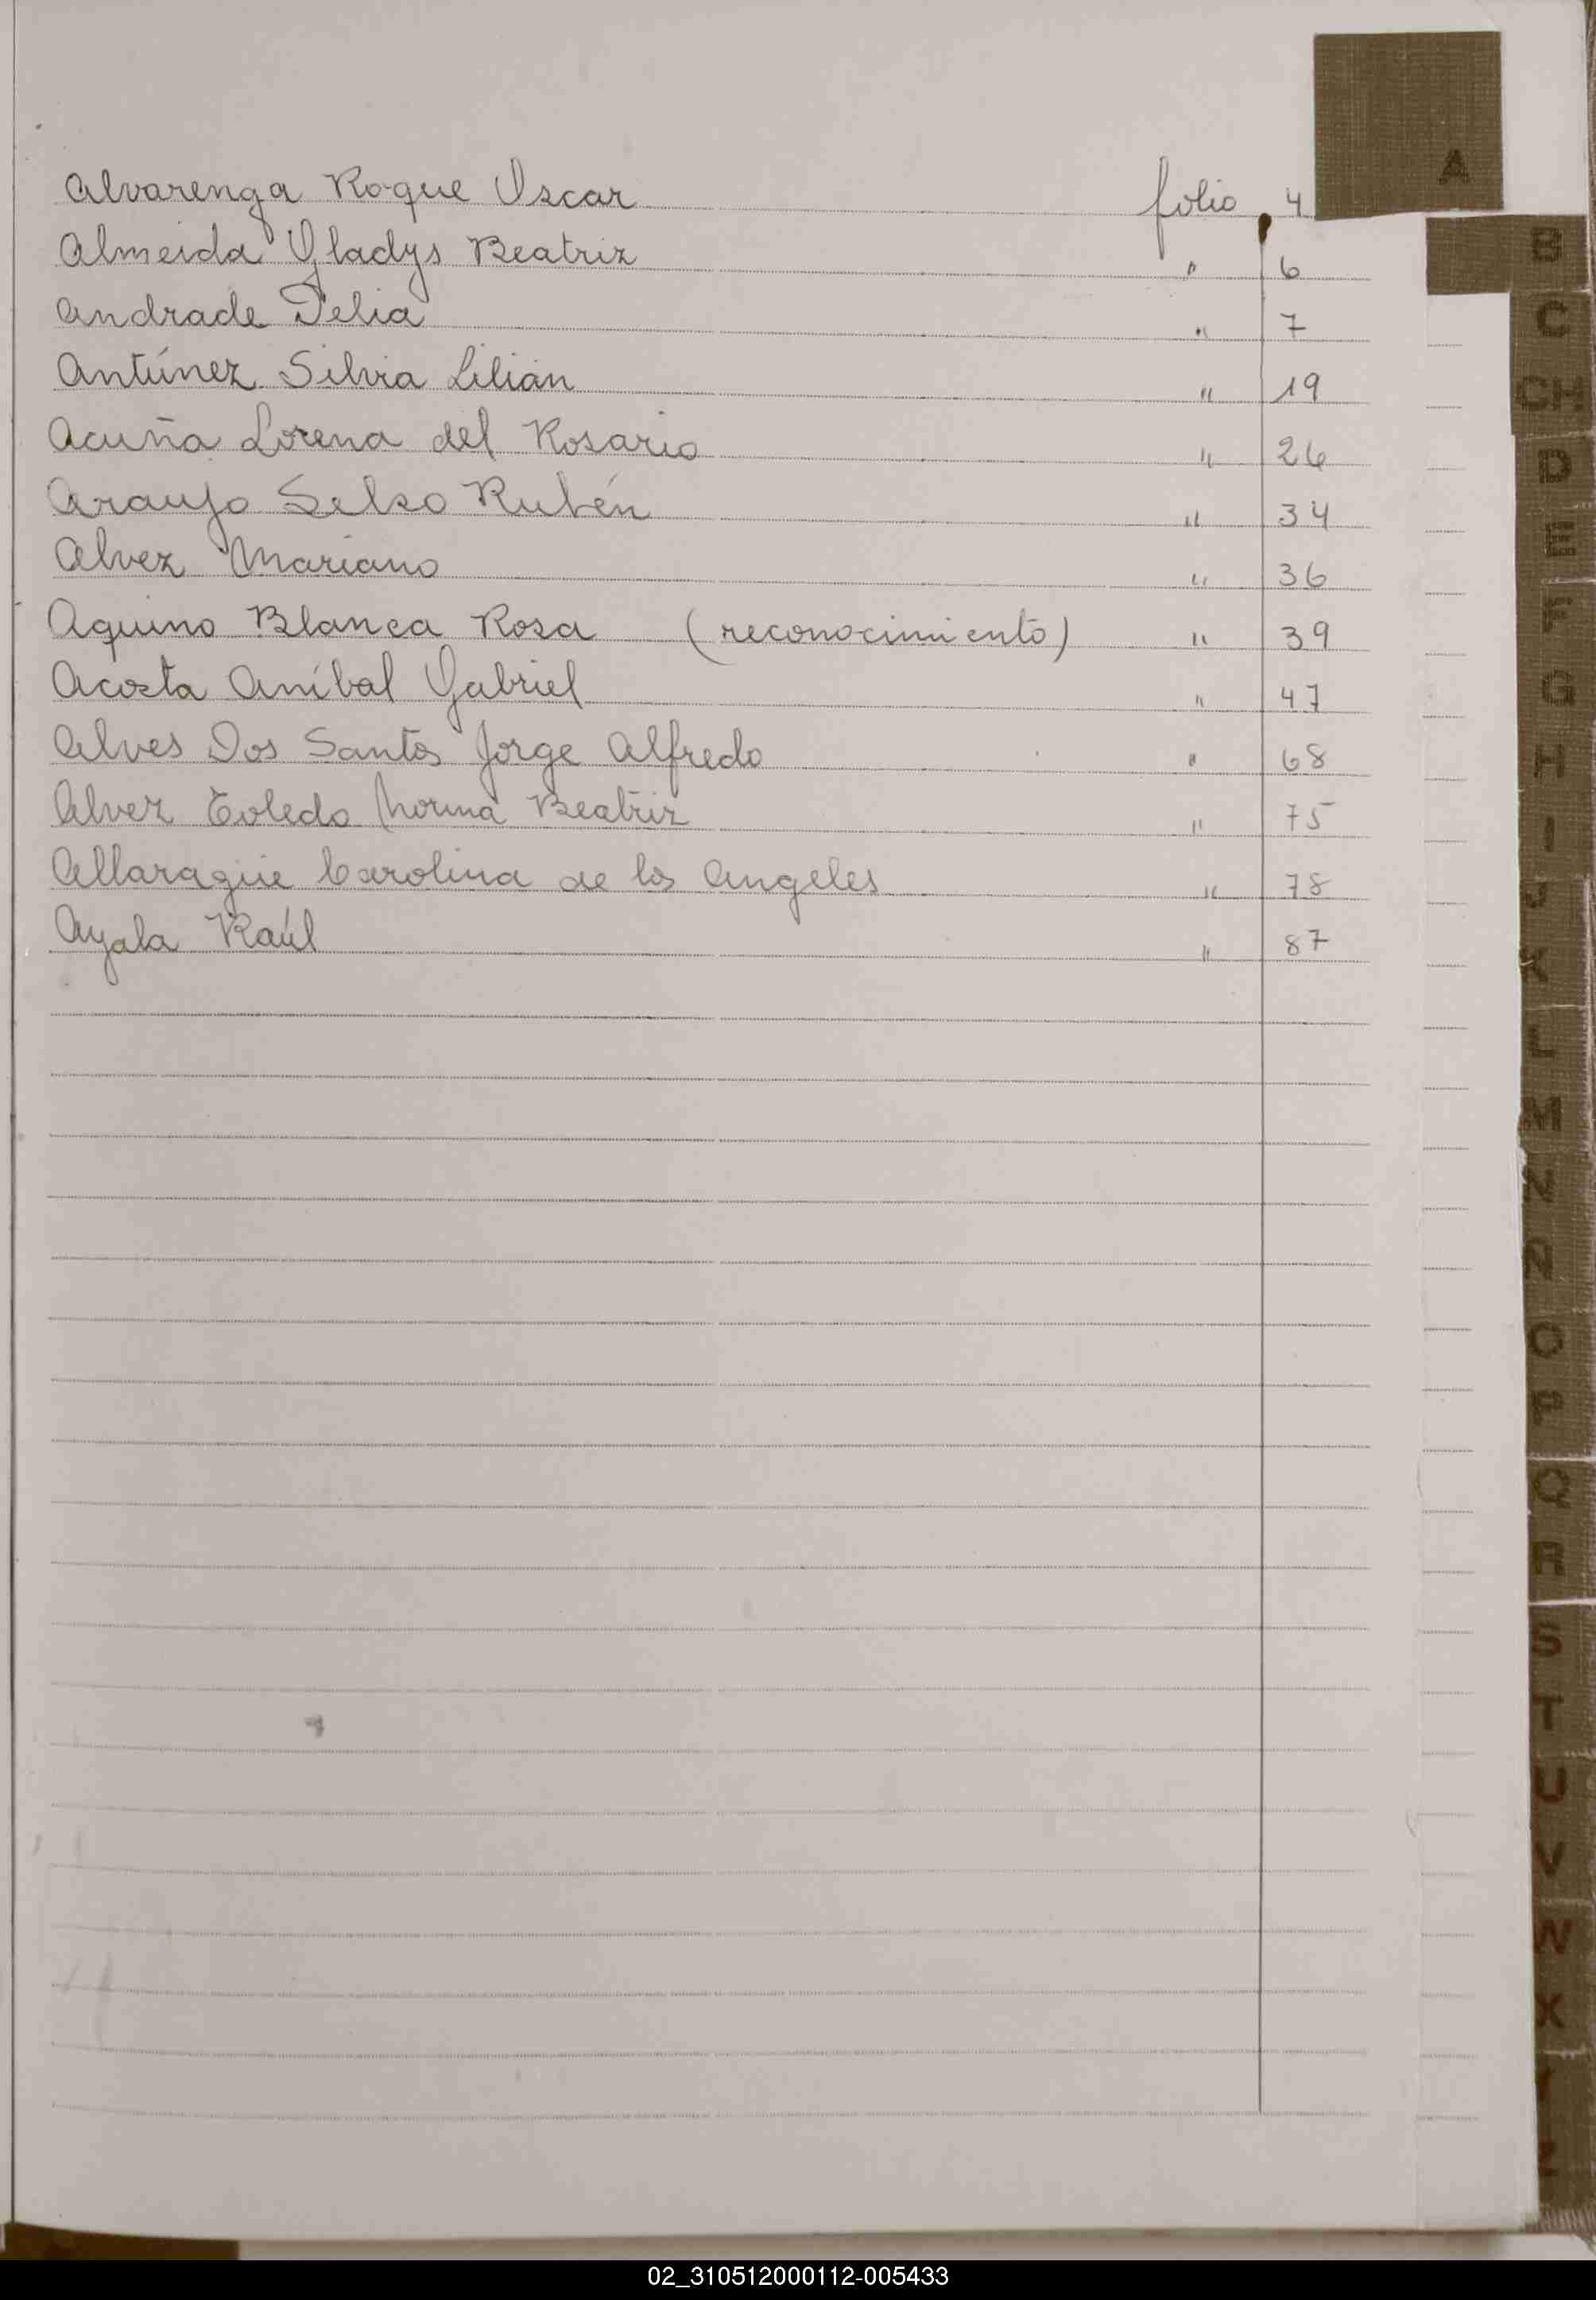 A
Alvarenga Roque Oscar folio 4
Almeida Gladys Beatriz " 6
Andrade Delia " 7
Antúnez Silvia Lilián " 19
Acuña Lorena del Rosario " 26
Araujo Selso Rubén " 34
Alvez Mariano " 36
Aquino Blanca Rosa (reconocimiento) " 39
Acosta Aníbal Gabriel " 47
Alves Dos Santos Jorge Alfredo " 68
Alvez Toledo Norma Beatriz " 75
Carolina de los Angeles " 78
Ayala Raúl " 87
B
C
CH
D
E
F
G
H
I
J
K
L
M
N
Ñ
O
P
Q
R
S
T
U
V
W
X
Y
Z
02_310512000112-005433